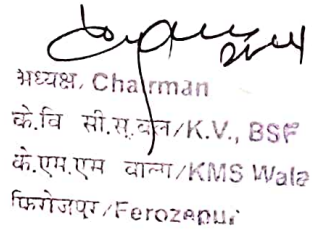 अध्यक्ष, Chairman
के.वि सी.सु.बल/K.V., BSF
के.एम.एम वाला/KMS Wala
फिरोजपुर/Ferozepur